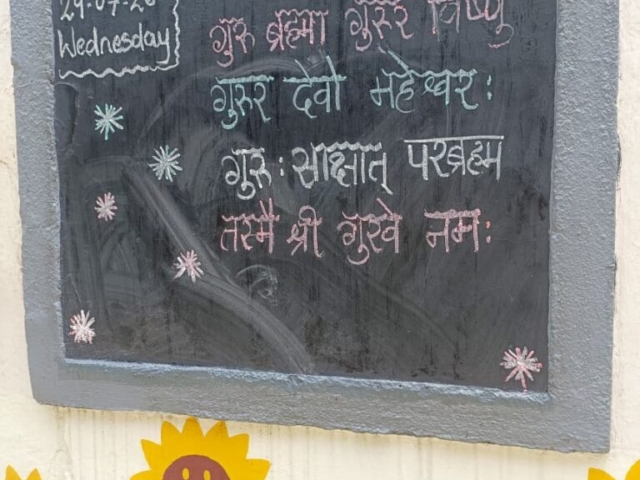 29-07-26
Wednesday
गुरु ब्रह्मा गुरुर विष्णु
गुरुर देवो महेश्वर:
गुरु: साक्षात् परब्रह्म
तस्मै श्री गुरवे नम: